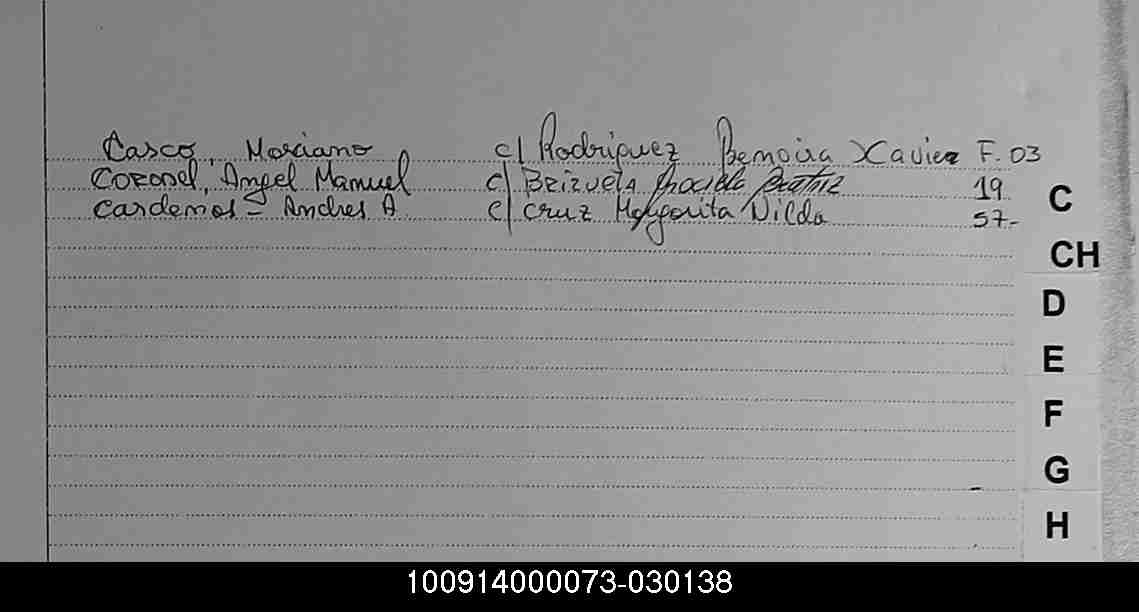 Casco, Marciano c/ Rodriguez Xavier F. 03
Coronel, Angel Manuel c/ Brizuela Beatriz 19
Cardenas - Andres A. c/ Cruz Margarita Nilda 57-
C
CH
D
E
F
G
H
100914000073-030138